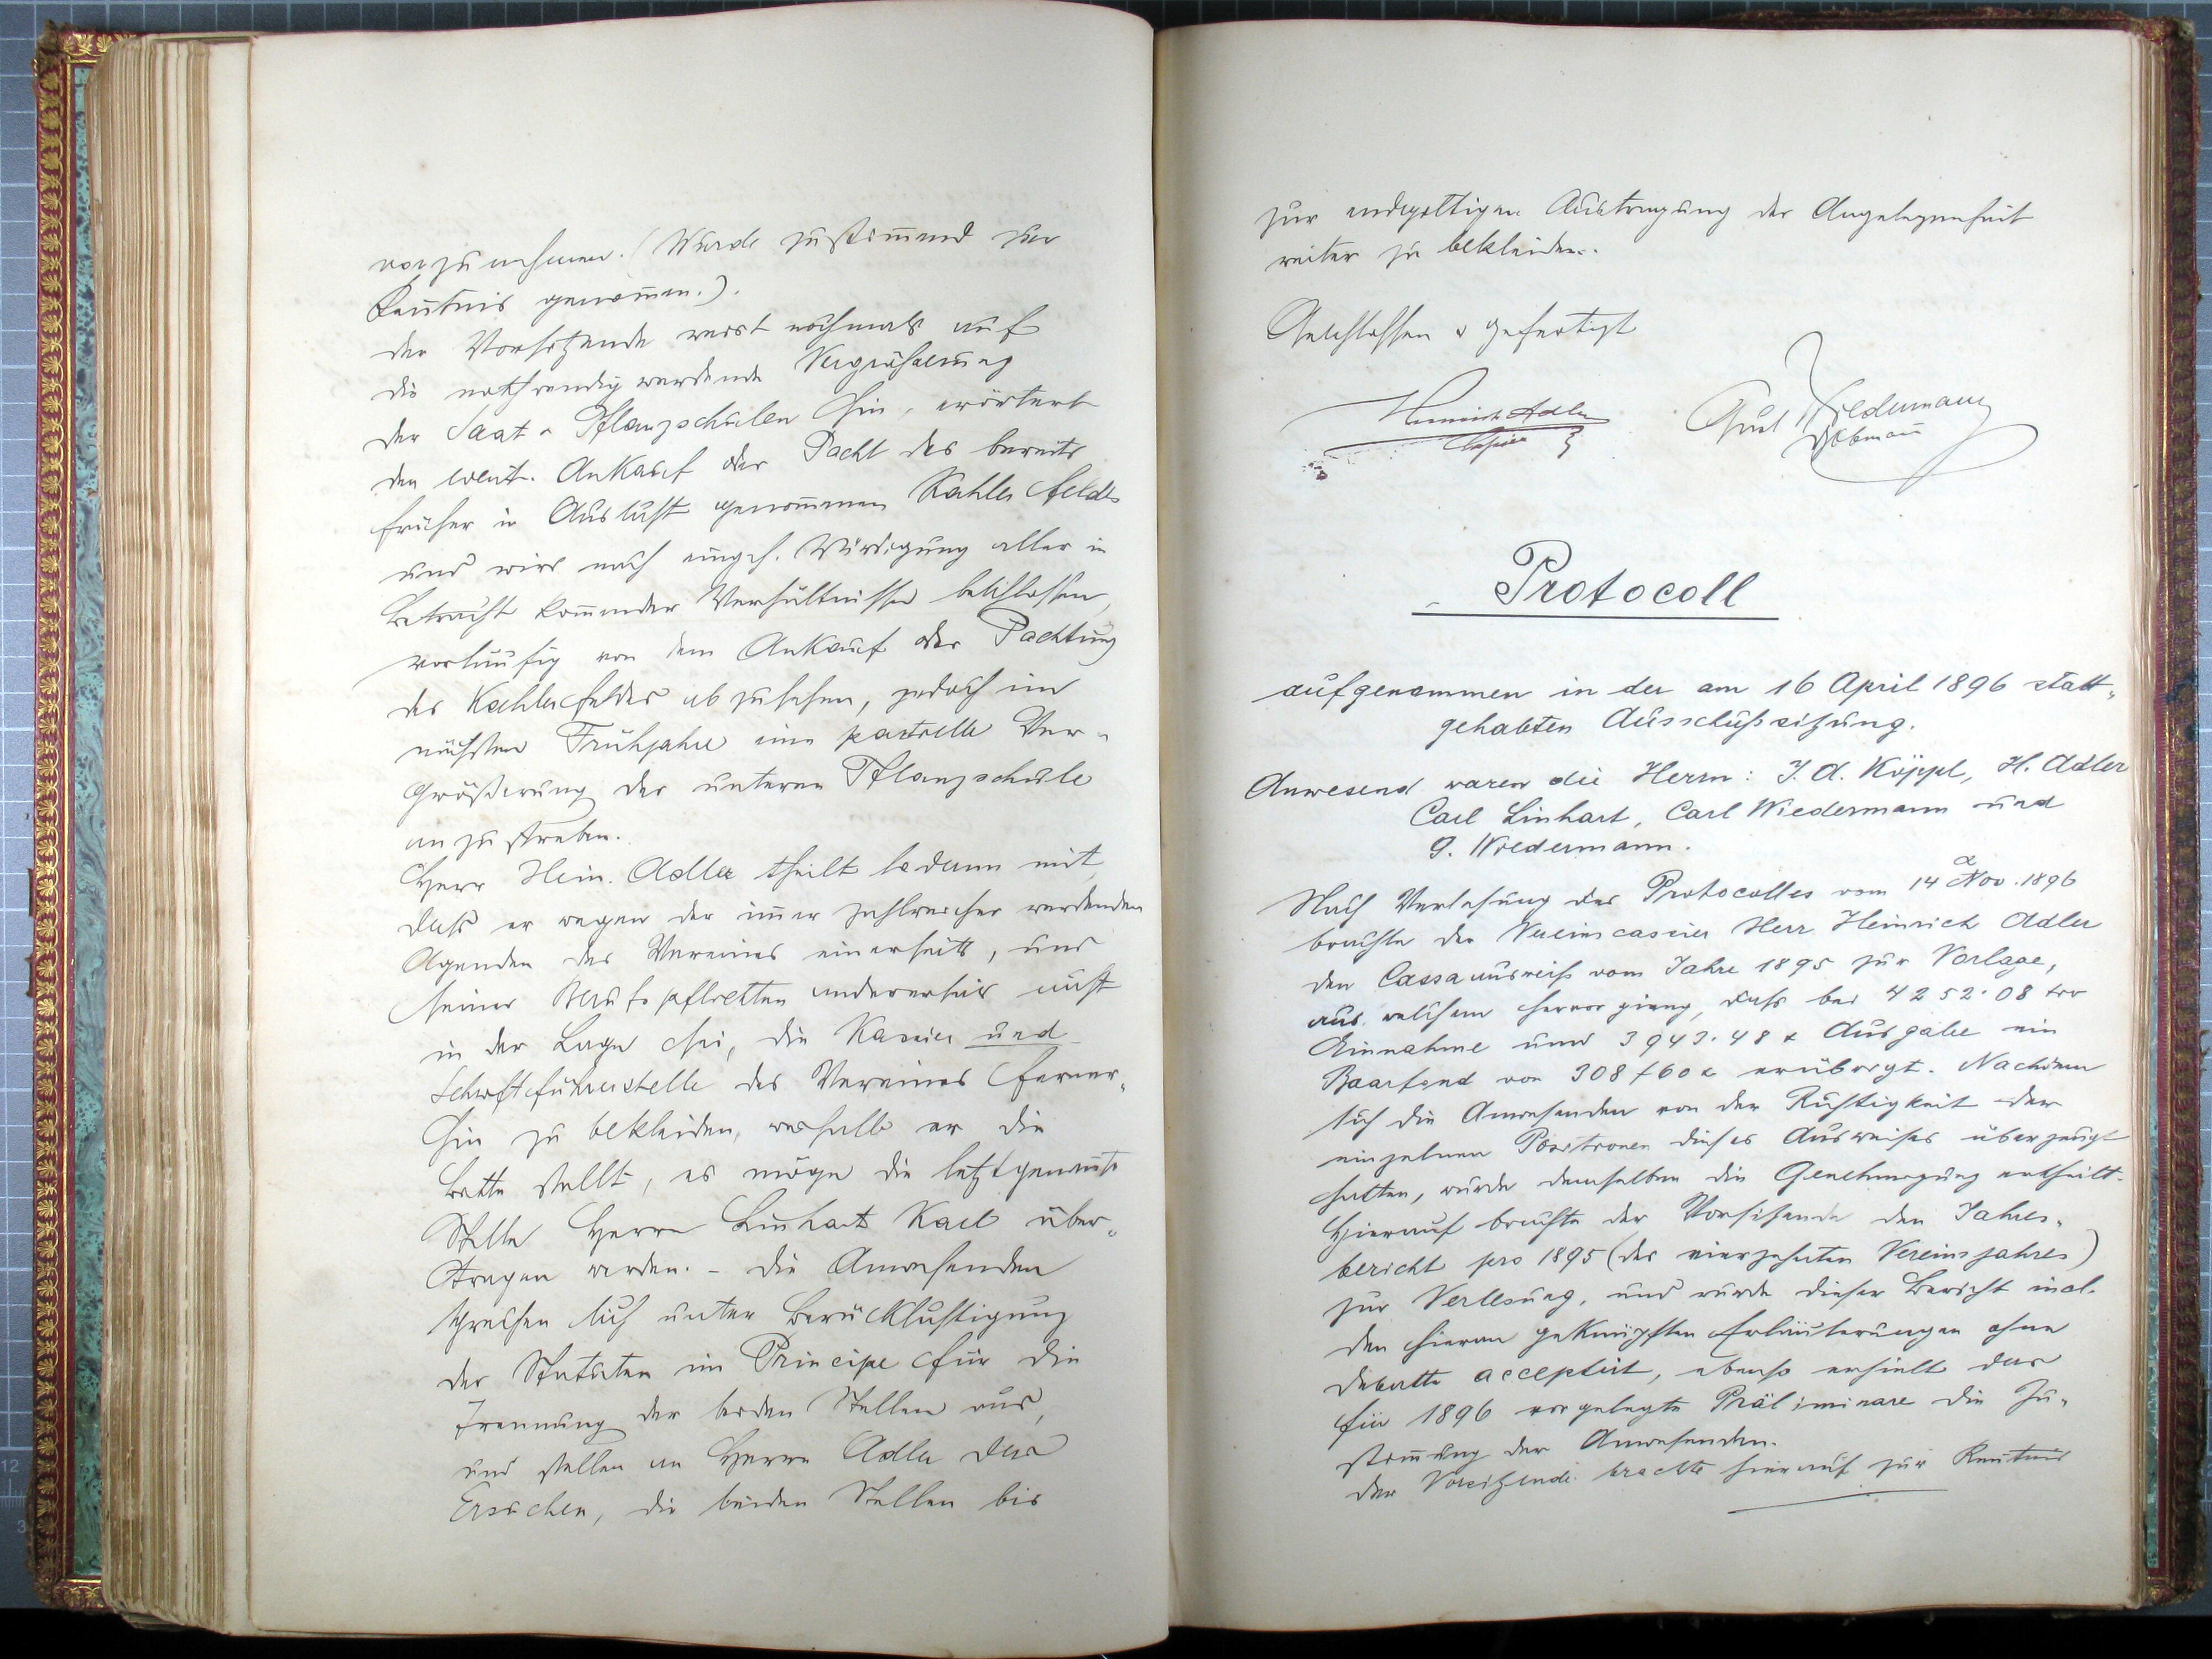 vorzunehmen. (Wurde zustimmend zur
Kenntnis genommen.).
der Vorsitzende weist nochmals auf
die nothwendig werdende Vergrößerung
der Saat & Pflanzschulen hin, erörtert
den event. Ankauf oder Pacht des bereits
früher in Aussicht genommenen Kahler feldes
und wird nach eingeh. Würdigung aller in
Betracht kommender Verhältnisse beschlossen,
vorläufig von dem Ankauf oder Pachtung
des Kahlerfeldes abzusehen, jedoch im
nächsten Frühjahre eine partielle Ver-
größerung der unteren Pflanzschule
anzustreben.
Herr Hein. Adler theilt sodann mit,
dass er wegen der immer zahlreicher werdenden
Agenden des Vereines einerseits, und
seiner Berufspflichten andererseits nicht
in der Lage sei, die Kassier und
Schriftführerstelle des Vereines ferner-
hin zu bekleiden, weshalb er die
Bitte stellt, es möge die letztgenannte
Stelle Herrn Linhart Karl über-
tragen werden. - Die Anwesenden
sprechen sich unter Berücksichtigung
der Statuten im Principe für die
Trennung der beiden Stellen aus,
und stellen an Herrn Adler das
Ersuchen, die beiden Stellen bis
zur endgiltigen Austragung der Angelegenheit
weiter zu bekleiden.
Geschlossen & gefertigt
Heinrich Adler
Cassier
Gust Wiedermann
Obmann
Protocoll
aufgenommen in der am 16 April 1896 statt-
gehabten Ausschußsitzung.
Anwesend waren die Herrn: J. A. Köppl, H. Adler
Carl Linhart, Carl Wiedermann und
G. Wiedermann.
Nach Verlesung des Protocolles vom 14 Nov. 1896
brachte der Vereinscassier Herr Heinrich Adler
den Cassaausweiß vom Jahre 1895 zur Vorlage,
aus welchem hervor gieng, dass bei 4252.08
Einnahme und 3943.48 x Ausgabe ein
Baarfond von 308 f 60 x erübrigt. Nachdem
sich die Anwesenden von der Richtigkeit der
einzelnen Positionen dieses Ausweises überzeugt
hatten, wurde demselben die Genehmigung ertheilt.
Hierauf brachte der Vorsitzende den Jahres-
bericht pro 1895 (des vierzehnten Vereinsjahres)
zur Verlesung, und wurde dieser Bericht incl.
den hieran geknüpften Erläuterungen ohne
Debatte acceptirt, ebenso erhielt das
für 1896 vorgelegte Präliminare die Zu-
stimmung der Anwesenden.
Der Vorsitzende brachte hierauf zur Kenntnis